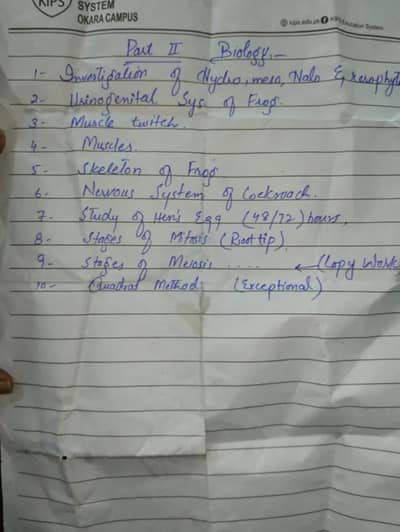 KIPS SYSTEM
OKARA CAMPUS
kips.edu.pk KIPS Education System
Part II Biology.-
1- Investigation of Hydro, meso, Halo & xerophyte
2- Urinogenital Sys. of Frog.
3- Muscle twitch.
4- Muscles.
5- Skeleton of Frog.
6- Nervous System of Cockroach.
7. Study of Hen's Egg (48/72) hours,
8- Stages of Mitosis (Root tip)
9- Stages of Meiosis .... ← Copy Work
10- Quadrat Method (Exceptional)